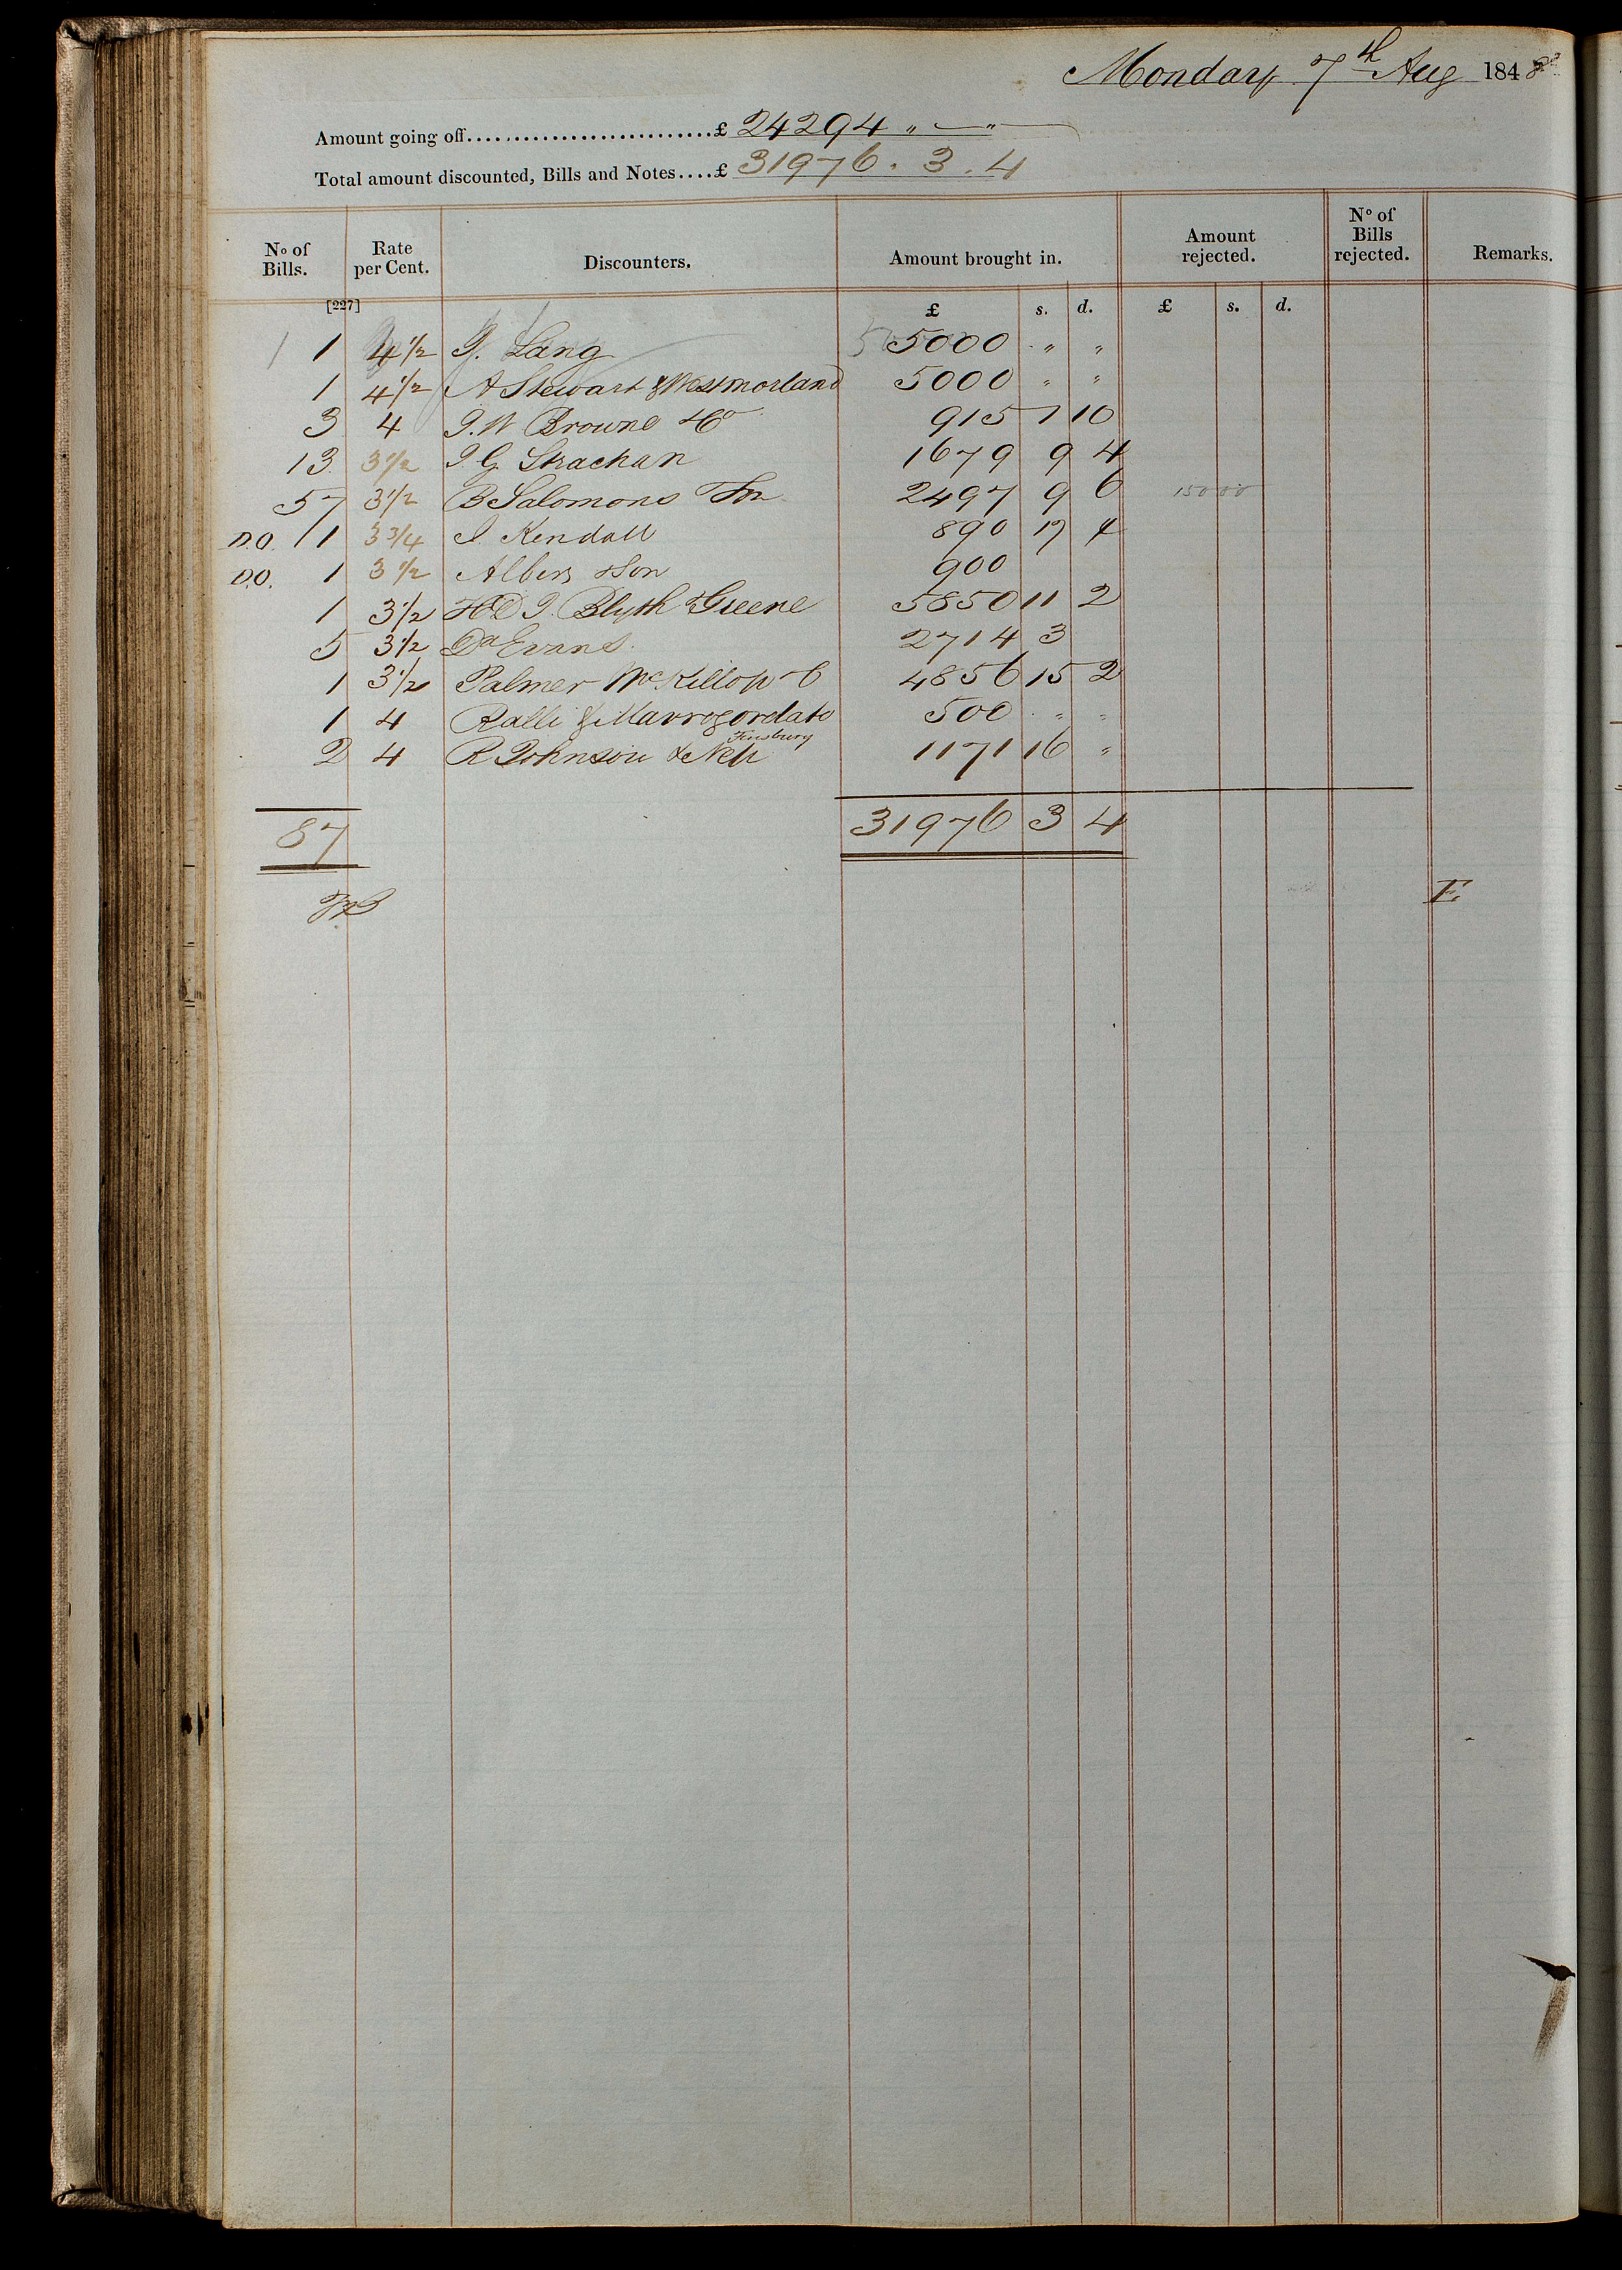 Monday 7th Aug 1848
Amount going off..........................£ 24294 " — "
Total amount discounted, Bills and Notes....£ 31976 . 3 . 4
No of Bills. Rate per Cent. Discounters. Amount brought in. Amount rejected. No of Bills rejected. Remarks.
[227] £ s. d. £ s. d.
1 4½ J. Lang 5000 " "
1 4½ A Stewart & Westmorland 5000 " "
3 4 J. W Browne & Co 915 1 10
13 3½ J G Strachan 1679 9 4
57 3½ B Salomons 2497 9 6 150 00
D.O. 1 3¾ J. Kendall 890 17 4
D.O. 1 3½ Albers & Son 900
1 3½ H D J. Blyth & Greene 5850 11 2
5 3½ Da Evans 2714 3
1 3½ Palmer McKillop & C 4856 15 2
1 4 Ralli & Mavrogordato 500 " "
Finsbury
2 4 R Johnson & Neph 1171 16 "
87 31976 3 4
E